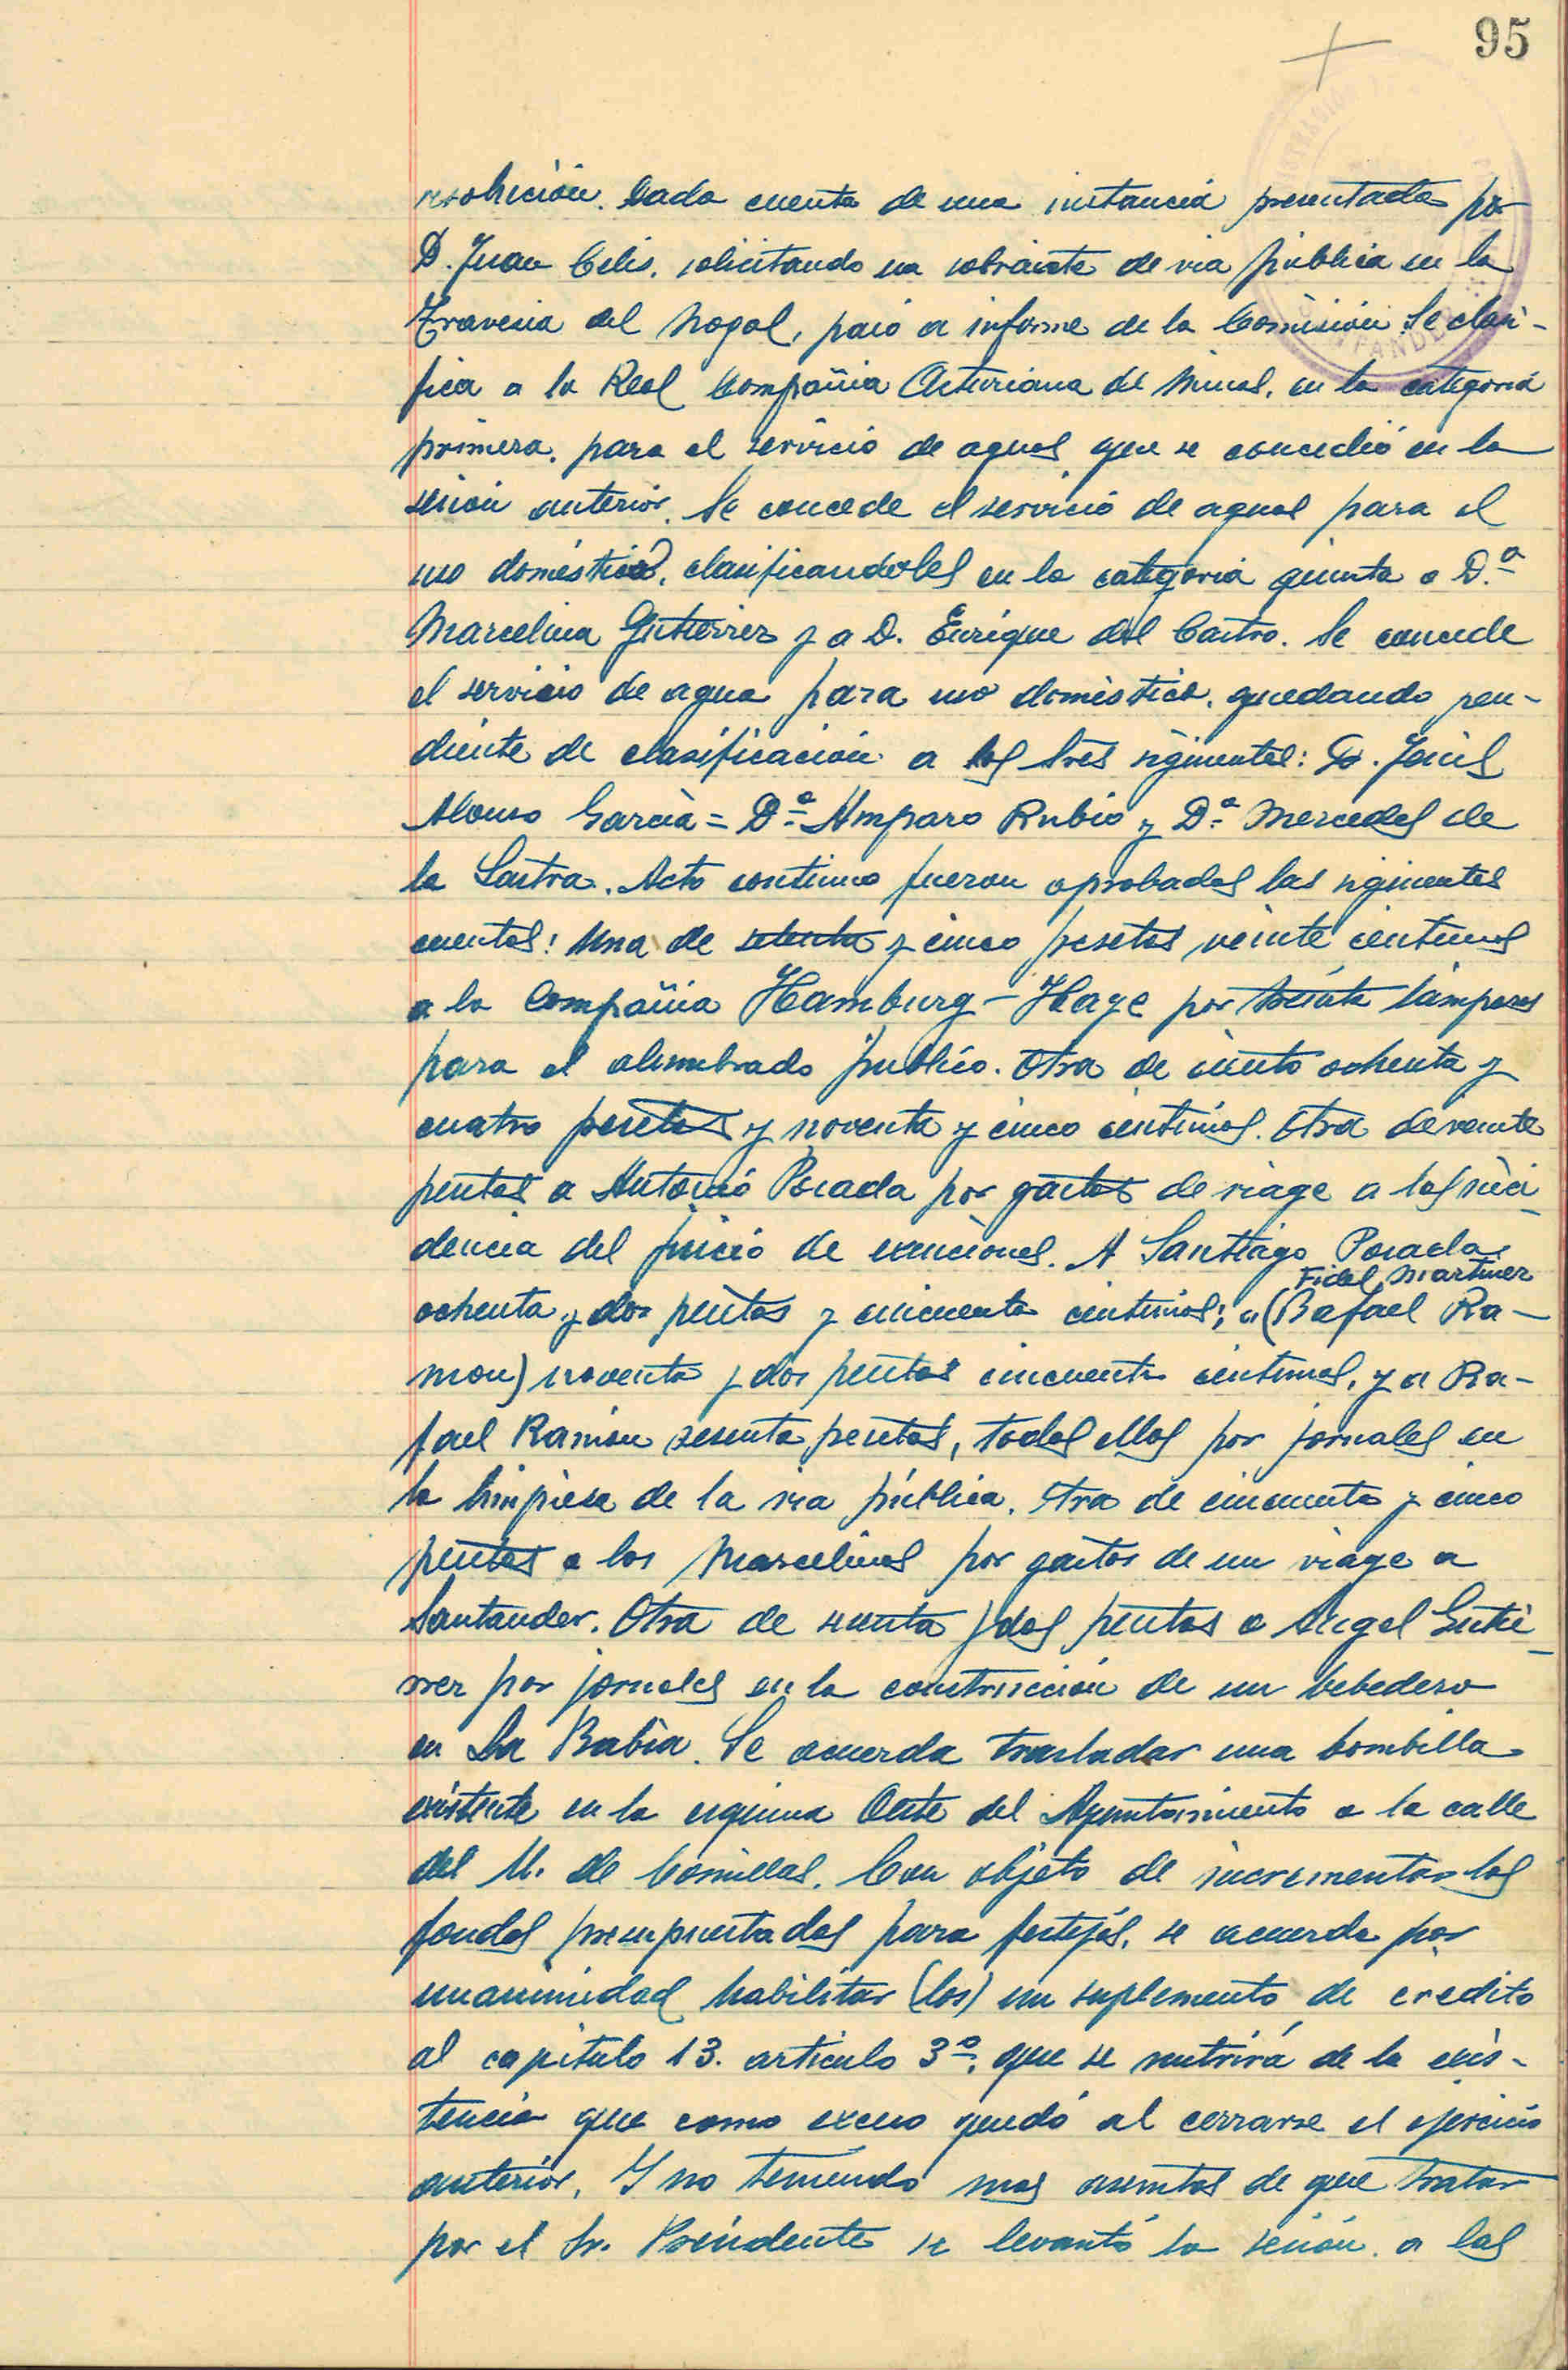 95
resolución. Dada cuenta de una instancia presentada por
D. Juan Celis, solicitando un sobrante de via pública en la
Travesia del Nogal, pasó a informe de la Comisión. Se clasi-
fica a la Real Compañia Asturiana de Minas, en la categoria
primera, para el servicio de aguas que se concedió en la
sesion anterior. Se concede el servicio de aguas para el
uso doméstico, clasificandoles en la categoria quinta a D.ª
Marcelina Gutierrez y a D. Enrique del Castro. Se concede
el servicio de agua para uso doméstico, quedando pen-
diente de clasificación a los tres siguientes: D. Jesús
Alonso García = D.ª Amparo Rubio y D.ª Mercedes de
la Lastra. Acto continuo fueron aprobadas las siguientes
cuentas: Una de setenta y cinco pesetas veinte centimos
a la Compañia Hamburg-Haye por treinta lámparas
para el alumbrado público. Otra de ciento ochenta y
cuatro pesetas y noventa y cinco centimos. Otra de veinte
pesetas a Antonio Posada por gastos de viage a las inci-
dencia del juicio de exenciones. A Santiago Posada
Fidel Martinez
ochenta y dos pesetas y cincuenta centimos; a (Rafael Ra-
mon) noventa y dos pesetas cincuenta centimos, y a Ra-
fael Ramón sesenta pesetas, todas ellas por jornales en
la limpieza de la via pública. Otra de cincuenta y cinco
pesetas a los Marcelinos por gastos de un viage a
Santander. Otra de sesenta y dos pesetas a Angel Gutié-
rrez por jornales en la construcción de un bebedero
en La Rabia. Se acuerda trasladar una bombilla
existente en la esquina Oeste del Ayuntamiento a la calle
del M. de Comillas. Con objeto de incrementar los
fondos presupuestados para festejos, se acuerda por
unanimidad habilitar (los) un suplemento de crédito
al capitulo 13. articulo 3º, que se nutrirá de la exis-
tencia que como exceso quedó al cerrarse el ejercicio
anterior. Y no teniendo mas asuntos de que tratar
por el Sr. Presidente se levantó la sesión a las